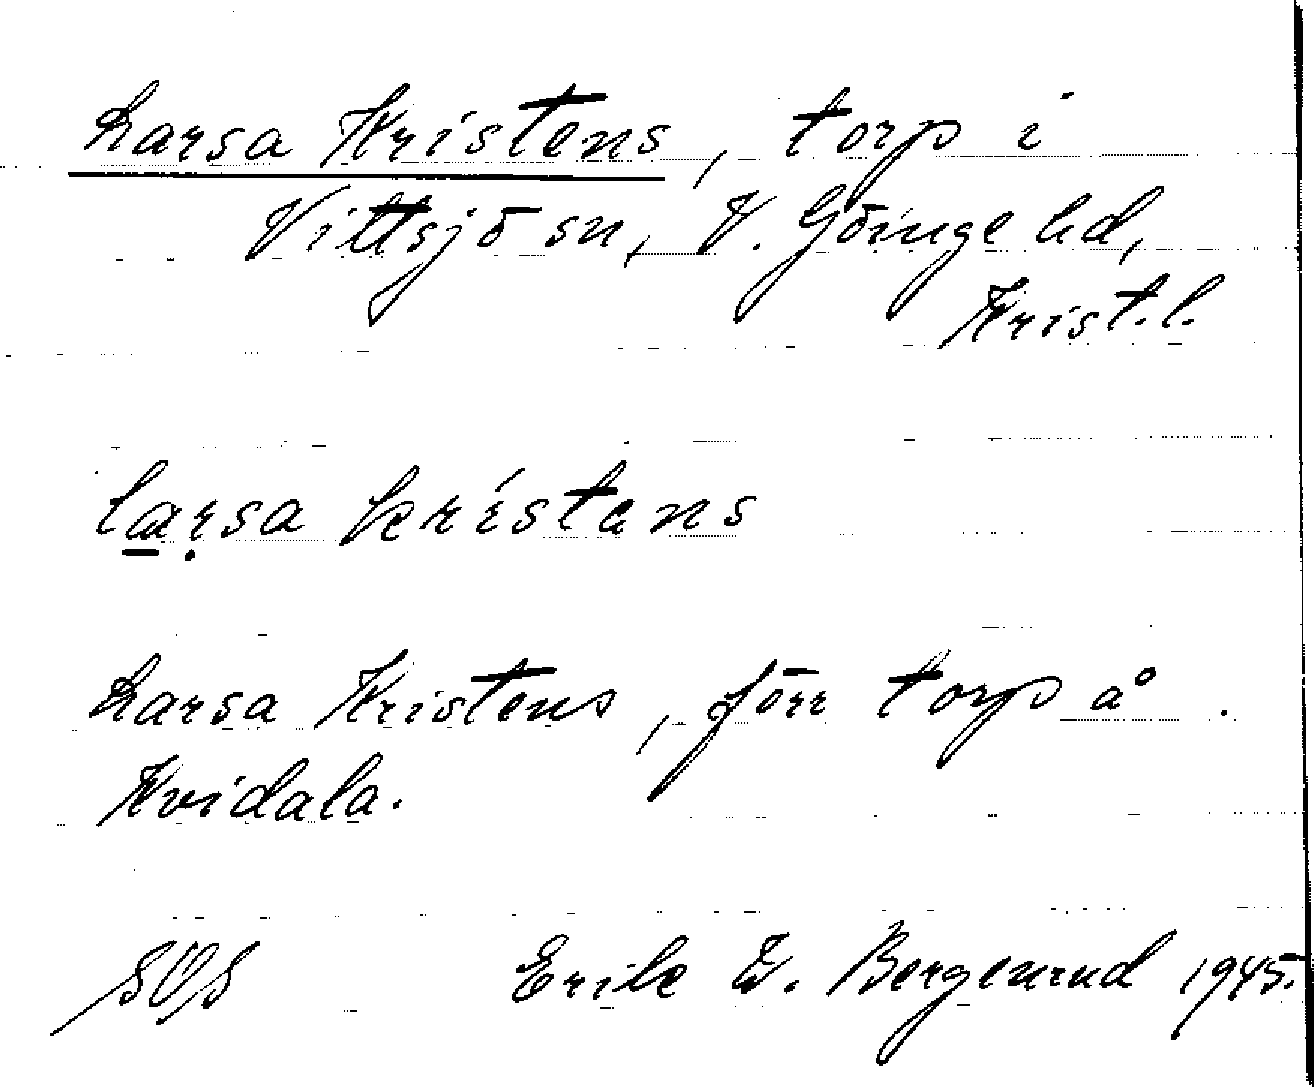 Larsa Kristens, torp i
Vittsjö sn, V. Göinge hd,
Krist.l.
læṛsa kréstens
Larsa Kristens, förr torp å
Kvidala.
SOS Erik W. Bergenrud 1945.